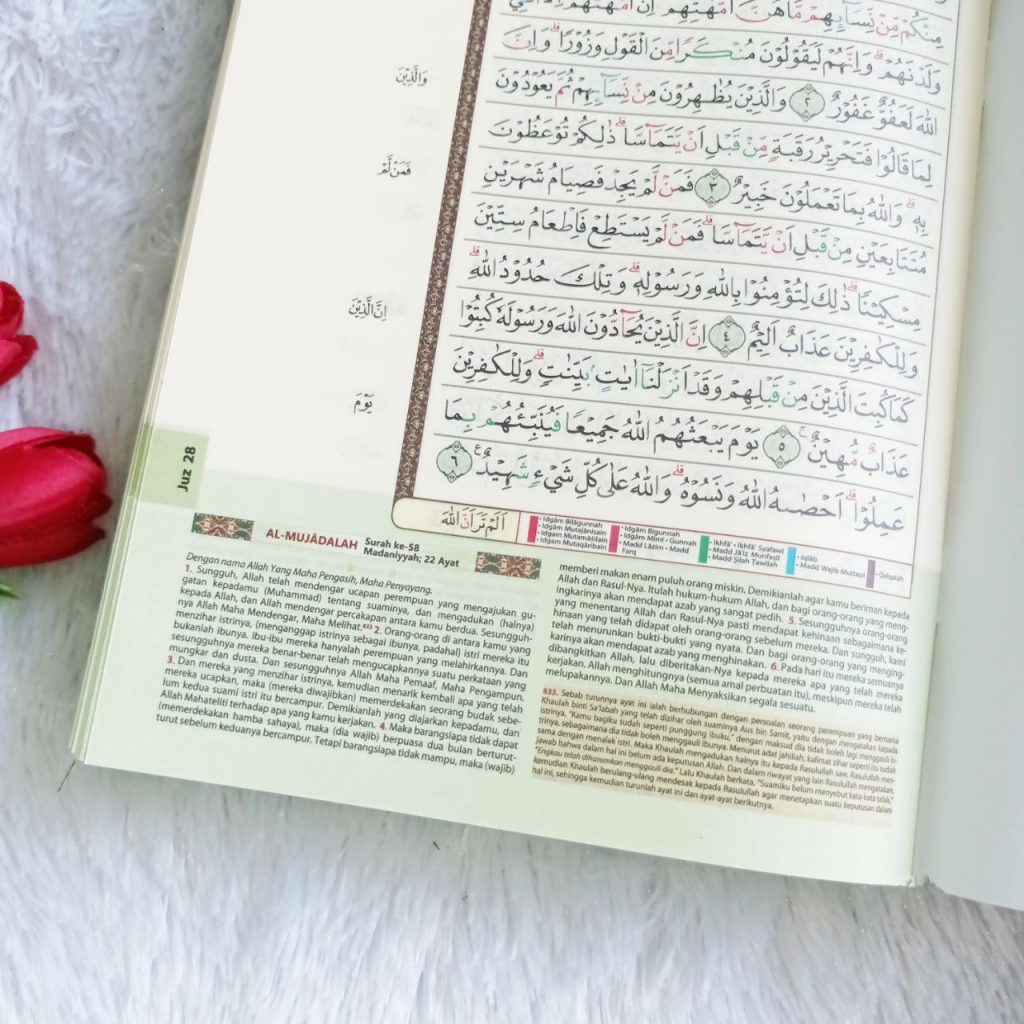 مِنْكُمْ مِّنْ نِّسَآىِٕهِمْ مَّا هُنَّ اُمَّهٰتِهِمْۗ اِنْ اُمَّهٰتُهُمْ
وَلَدْنَهُمْۗ وَاِنَّهُمْ لَيَقُوْلُوْنَ مُنْكَرًا مِّنَ الْقَوْلِ وَزُوْرًاۗ وَاِنَّ
اللّٰهَ لَعَفُوٌّ غَفُوْرٌ ٢ وَالَّذِيْنَ يُظٰهِرُوْنَ مِنْ نِّسَآىِٕهِمْ ثُمَّ يَعُوْدُوْنَ
لِمَا قَالُوْا فَتَحْرِيْرُ رَقَبَةٍ مِّنْ قَبْلِ اَنْ يَّتَمَاۤسَّاۗ ذٰلِكُمْ تُوْعَظُوْنَ
بِهٖۗ وَاللّٰهُ بِمَا تَعْمَلُوْنَ خَبِيْرٌ ٣ فَمَنْ لَّمْ يَجِدْ فَصِيَامُ شَهْرَيْنِ
مُتَتَابِعَيْنِ مِنْ قَبْلِ اَنْ يَّتَمَاۤسَّاۗ فَمَنْ لَّمْ يَسْتَطِعْ فَاِطْعَامُ سِتِّيْنَ
مِسْكِيْنًاۗ ذٰلِكَ لِتُؤْمِنُوْا بِاللّٰهِ وَرَسُوْلِهٖۗ وَتِلْكَ حُدُوْدُ اللّٰهِۗ
وَلِلْكٰفِرِيْنَ عَذَابٌ اَلِيْمٌ ٤ اِنَّ الَّذِيْنَ يُحَاۤدُّوْنَ اللّٰهَ وَرَسُوْلَهٗ كُبِتُوْا
كَمَا كُبِتَ الَّذِيْنَ مِنْ قَبْلِهِمْ وَقَدْ اَنْزَلْنَآ اٰيٰتٍۢ بَيِّنٰتٍۗ وَلِلْكٰفِرِيْنَ
عَذَابٌ مُّهِيْنٌۚ ٥ يَوْمَ يَبْعَثُهُمُ اللّٰهُ جَمِيْعًا فَيُنَبِّئُهُمْ بِمَا
عَمِلُوْاۗ اَحْصٰىهُ اللّٰهُ وَنَسُوْهُۗ وَاللّٰهُ عَلٰى كُلِّ شَيْءٍ شَهِيْدٌ ࣖ ٦
وَالَّذِيْنَ
فَمَنْ لَّمْ
اِنَّ الَّذِيْنَ
يَوْمَ
Juz 28
اَلَمْ تَرَ اَنَّ اللّٰهَ
• Idgām Bilāgunnah
• Idgām Mutajānisain
• Idgam Mutamāṡilain
• Idgam Mutaqāribain
• Idgām Bigunnah
• Idgām Mimī • Gunnah
• Madd Lāzim • Madd Farq
• Ikhfā' • Ikhfā' Syafawī
• Madd Jā'iz Munfaṣil
• Madd Ṣilah Ṭawīlah
• Iqlāb
• Madd Wajib Muttaṣil
• Qalqalah
AL-MUJĀDALAH
Surah ke-58
Madaniyyah; 22 Ayat
Dengan nama Allah Yang Maha Pengasih, Maha Penyayang.
1. Sungguh, Allah telah mendengar ucapan perempuan yang mengajukan gu-
gatan kepadamu (Muhammad) tentang suaminya, dan mengadukan (halnya)
kepada Allah, dan Allah mendengar percakapan antara kamu berdua. Sesungguh-
nya Allah Maha Mendengar, Maha Melihat.⁸³³ 2. Orang-orang di antara kamu yang
menzihar istrinya, (menganggap istrinya sebagai ibunya, padahal) istri mereka itu
bukanlah ibunya. Ibu-ibu mereka hanyalah perempuan yang melahirkannya. Dan
sesungguhnya mereka benar-benar telah mengucapkannya suatu perkataan yang
mungkar dan dusta. Dan sesungguhnya Allah Maha Pemaaf, Maha Pengampun.
3. Dan mereka yang menzihar istrinya, kemudian menarik kembali apa yang telah
mereka ucapkan, maka (mereka diwajibkan) memerdekakan seorang budak sebe-
lum kedua suami istri itu bercampur. Demikianlah yang diajarkan kepadamu, dan
Allah Mahateliti terhadap apa yang kamu kerjakan. 4. Maka barangsiapa tidak dapat
(memerdekakan hamba sahaya), maka (dia wajib) berpuasa dua bulan berturut-
turut sebelum keduanya bercampur. Tetapi barangsiapa tidak mampu, maka (wajib)
memberi makan enam puluh orang miskin. Demikianlah agar kamu beriman kepada
Allah dan Rasul-Nya. Itulah hukum-hukum Allah, dan bagi orang-orang yang meng-
ingkarinya akan mendapat azab yang sangat pedih. 5. Sesungguhnya orang-orang
yang menentang Allah dan Rasul-Nya pasti mendapat kehinaan sebagaimana ke-
hinaan yang telah didapat oleh orang-orang sebelum mereka. Dan sungguh, kami
telah menurunkan bukti-bukti yang nyata. Dan bagi orang-orang yang mengingkarinya akan mendapat azab yang menghinakan. 6. Pada hari itu mereka semuanya
dibangkitkan Allah, lalu diberitakan-Nya kepada mereka apa yang telah mereka
kerjakan. Allah menghitungnya (semua amal perbuatan itu), meskipun mereka telah
melupakannya. Dan Allah Maha Menyaksikan segala sesuatu.
833. Sebab turunnya ayat ini ialah berhubungan dengan persoalan seorang perempuan yang bernama
Khaulah binti Sa'labah yang telah dizihar oleh suaminya Aus bin Samit, yaitu dengan mengatakan kepada
istrinya, "Kamu bagiku sudah seperti punggung ibuku," dengan maksud dia tidak boleh lagi menggauli is-
trinya, sebagaimana dia tidak boleh menggauli ibunya. Menurut adat jahiliah, kalimat zihar seperti itu sudah
sama dengan menalak istri. Maka Khaulah mengadukan halnya itu kepada Rasulullah saw. Rasulullah men-
jawab bahwa dalam hal ini belum ada keputusan Allah. Dan dalam riwayat yang lain Rasulullah mengatakan,
"Engkau telah diharamkan menggauli dia." Lalu Khaulah berkata, "Suamiku belum menyebut kata-kata talak,"
kemudian Khaulah berulang-ulang mendesak kepada Rasulullah agar menetapkan suatu keputusan dalam
hal ini, sehingga kemudian turunlah ayat ini dan ayat-ayat berikutnya.